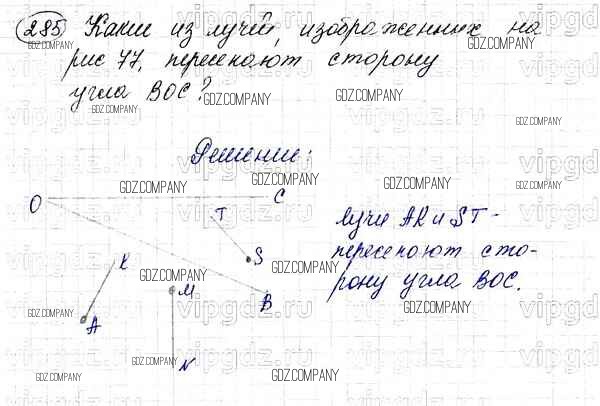 285 Какие из лучей, изображенных на
рис 77, пересекают сторону
угла BOC?
Решение:
O
C
T
S
K
M
B
A
N
Лучи AK и ST -
пересекают сто-
рону угла BOC.
GDZ.COMPANY
vipgdz.ru